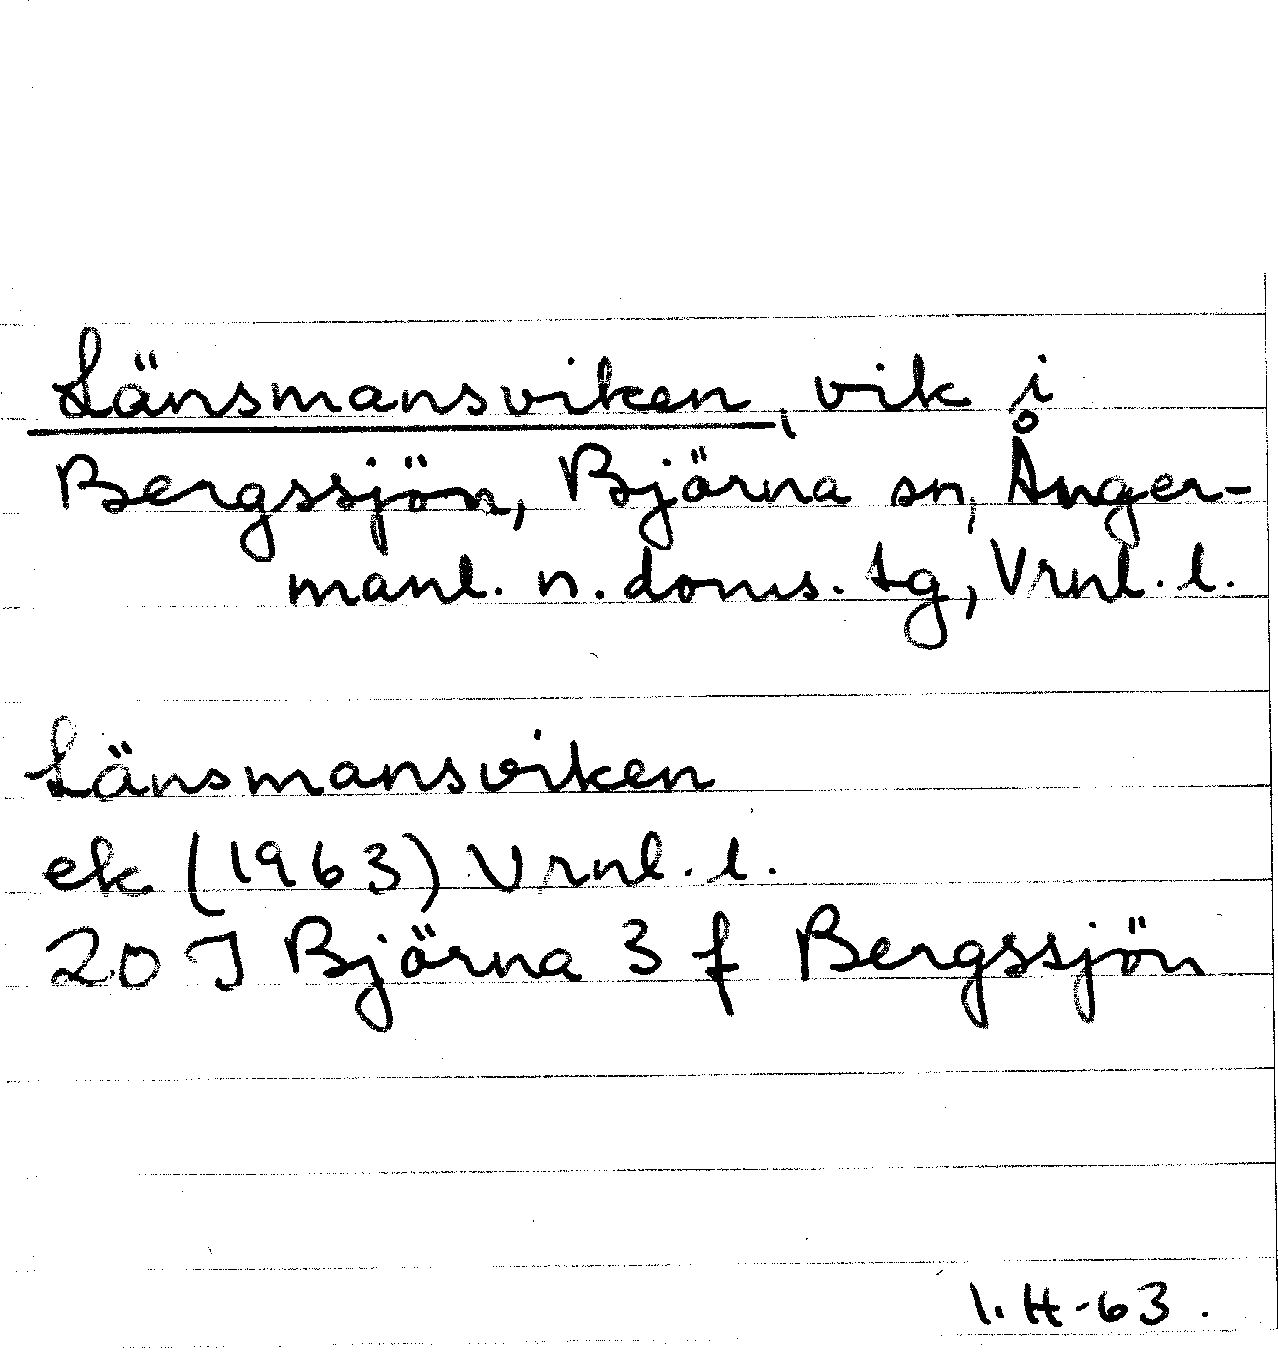 Länsmansviken, vik i
Bergssjön, Björna sn, Ånger-
manl. n. doms. tg, Vrnl. l.
Länsmansviken
ek (1963) Vrnl. l.
20 J Björna 3 f Bergssjön
I. H-63.